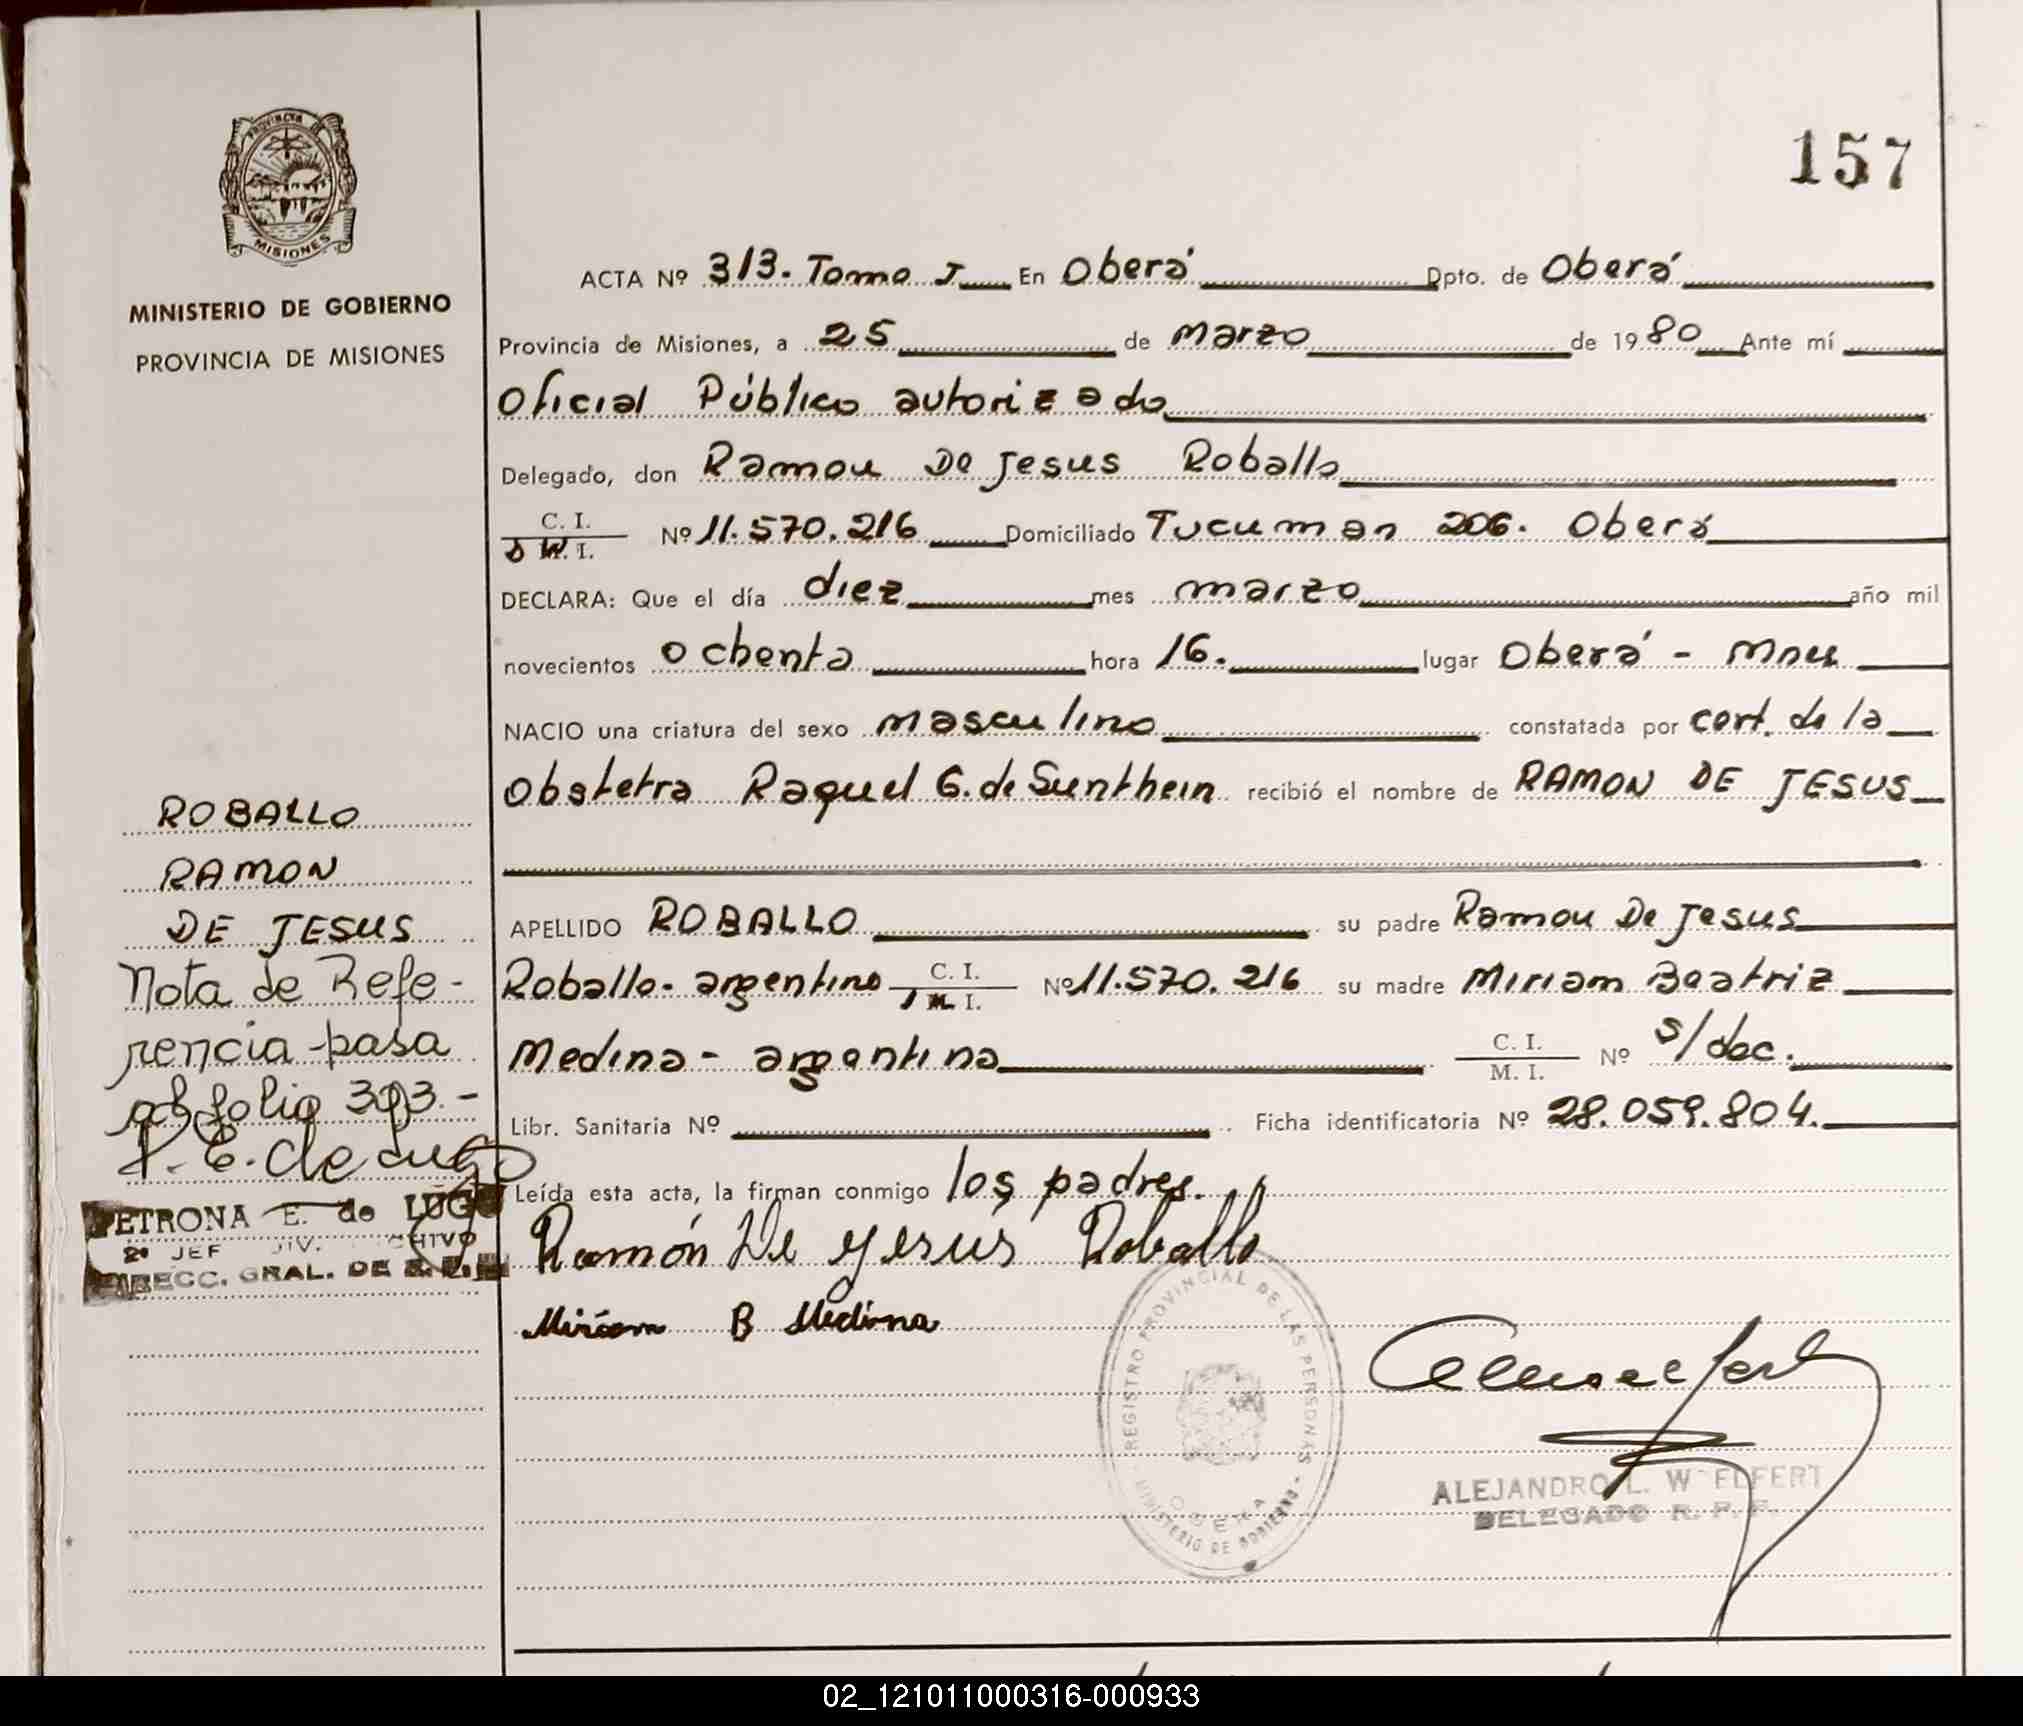 157
PROVINCIA DE
MISIONES
MINISTERIO DE GOBIERNO
PROVINCIA DE MISIONES
ACTA Nº 313. Tomo I En Oberá Dpto. de Oberá
Provincia de Misiones, a 25 de Marzo de 1980 Ante mí
Oficial Público autorizado
Delegado, don Ramon De Jesus Roballo
C. I.
D M. I. Nº 11.570.216 Domiciliado Tucuman 206. Oberá
DECLARA: Que el día diez mes marzo año mil
novecientos ochenta hora 16. lugar Oberá - Mnes
NACIO una criatura del sexo masculino constatada por cert. de la
Obstetra Raquel G. de Sunthein recibió el nombre de RAMON DE JESUS
APELLIDO ROBALLO su padre Ramon De Jesus
Roballo - argentino C. I.
M. I. Nº 11.570.216 su madre Miriam Beatriz
Medina - argentina C. I.
M. I. Nº s/doc.
Libr. Sanitaria Nº Ficha identificatoria Nº 28.059.804.
Leída esta acta, la firman conmigo los padres.
Ramón De Jesús Roballo
Miriam B Medina
ROBALLO
RAMON
DE JESUS
Nota de Refe-
rencia pasa
al folio 393.-
P. E. de Lugo
PETRONA E. de LUGO
2º JEF DIV. ARCHIVO
DIRECC. GRAL. DE
REGISTRO PROVINCIAL DE LAS PERSONAS
OBERA
MINISTERIO DE GOBIERNO
ALEJANDRO L. W ELFERT
DELEGADO R. P. P.
02_121011000316-000933